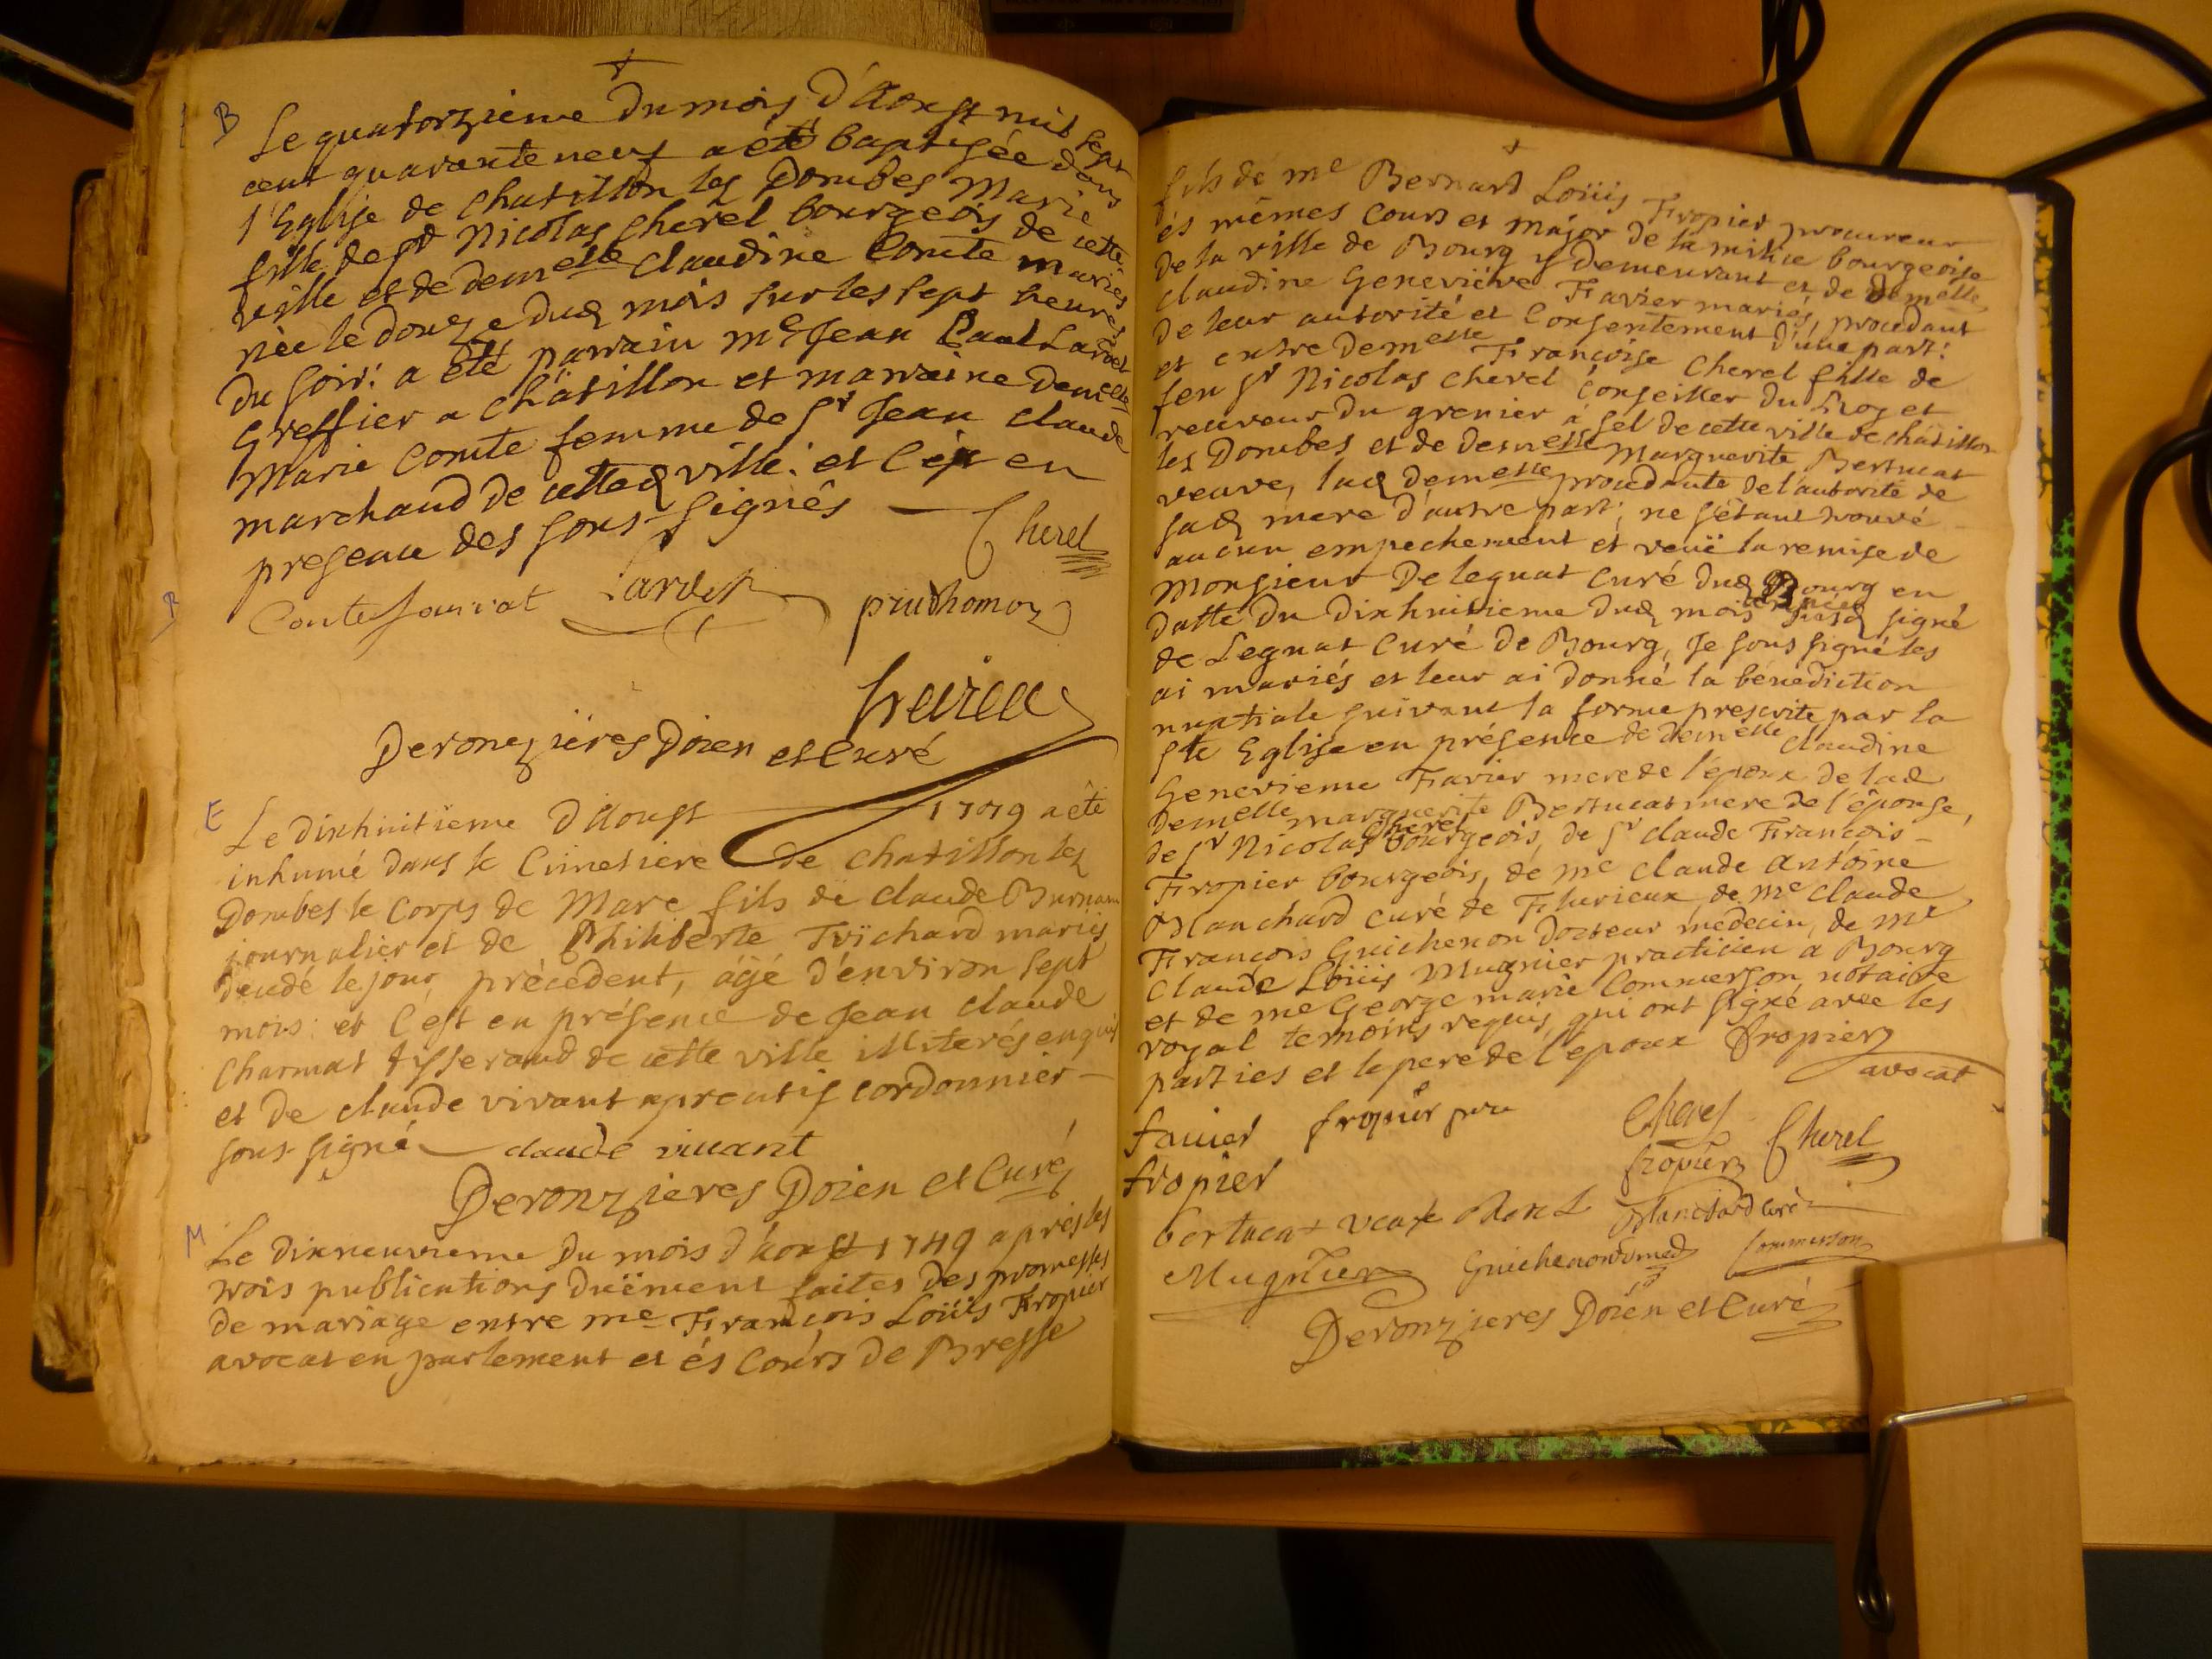 B
Le quatorzieme du mois d'Aoust mil sept
cent quarante neuf a été baptisée dans
l'Eglise de chatillon les Dombes Marie
fille de sr Nicolas Cherel bourgeois de cette
ville et de demelle claudine Comte mariés
née le douze dud mois sur les sept heures
du soir: a été parrain me Jean Lardet
Greffier a châtillon et marraine demelle
Marie Comte femme de sr Jean claude
marchand de cetted ville: et c'est en
presence des sous-signés — Cherel
Comte Lardet prudhomoz
Deronzières Doien et Curé
E
Le dixhuitieme d'Aoust 1749 a été
inhumé dans le Cimetiere de chatillon les
Dombes le corps de Marc fils de claude
journalier et de Philiberte Trichard mariés
décédé le jour précedent, âgé d'environ sept
mois: et c'est en présence de Jean claude
Charmat tisserand de cette ville illiterés enquis
et de claude vivant aprentif cordonnier —
sous-signé — claude vivant
Deronzieres Doien et Curé
M
Le dixneuvieme du mois d'aoust 1749 après les
trois publications duëment faites des promesses
de mariage entre me François Loüis Fropier
avocat en parlement et és Cours de Bresse
fils de me Bernard Loüis Fropier procureur
és mêmes Cours et major de la milice bourgeoise
de la ville de Bourg y demeurant et de demelle
claudine Geneviéve Favier mariés, procedant
de leur autorité et Consentement d'une part:
et entre demelle Françoise Cherel fille de
feu sr Nicolas Cherel Conseiller du Roy et
receveur du grenier à sel de cette ville de châtillon
les Dombes et de demelle Marguerite Bertucat
veuve, lad demelle procedante de l'autorité de
sad mere d'autre part; ne s'étant trouvé
aucun empechement et veuë la remise de
Monsieur De legnat curé dud Bourg en
datte du dixhuitieme dud mois signé
de Legnat Curé de Bourg, Je sous signé les
ai mariés et leur ai donné la bénediction
nuptiale suivant la forme prescrite par la
ste Eglise en présence de demelle Claudine
Genevieme Favier mere de l'époux de lad
demelle marguerite Bertucat mere de l'épouse,
de sr Nicolas Cherel bourgeois, de sr claude François-
Fropier bourgeois, de me claude antoine
Blanchard curé de Flurieux de me claude
François Guichenon docteur médecin, de me
Claude Loüis Mugnier practicien a Bourg
et de me George marie Commerson notaire
royal temoins requis, qui ont signé avec les
parties et le pere de l'epoux Fropier
avocat
favier fropier Cherel
fropier Fropier Cherel
bertucat Blanchard curé
Mugnier Guichenon Commerson
Deronzieres Doien et Curé